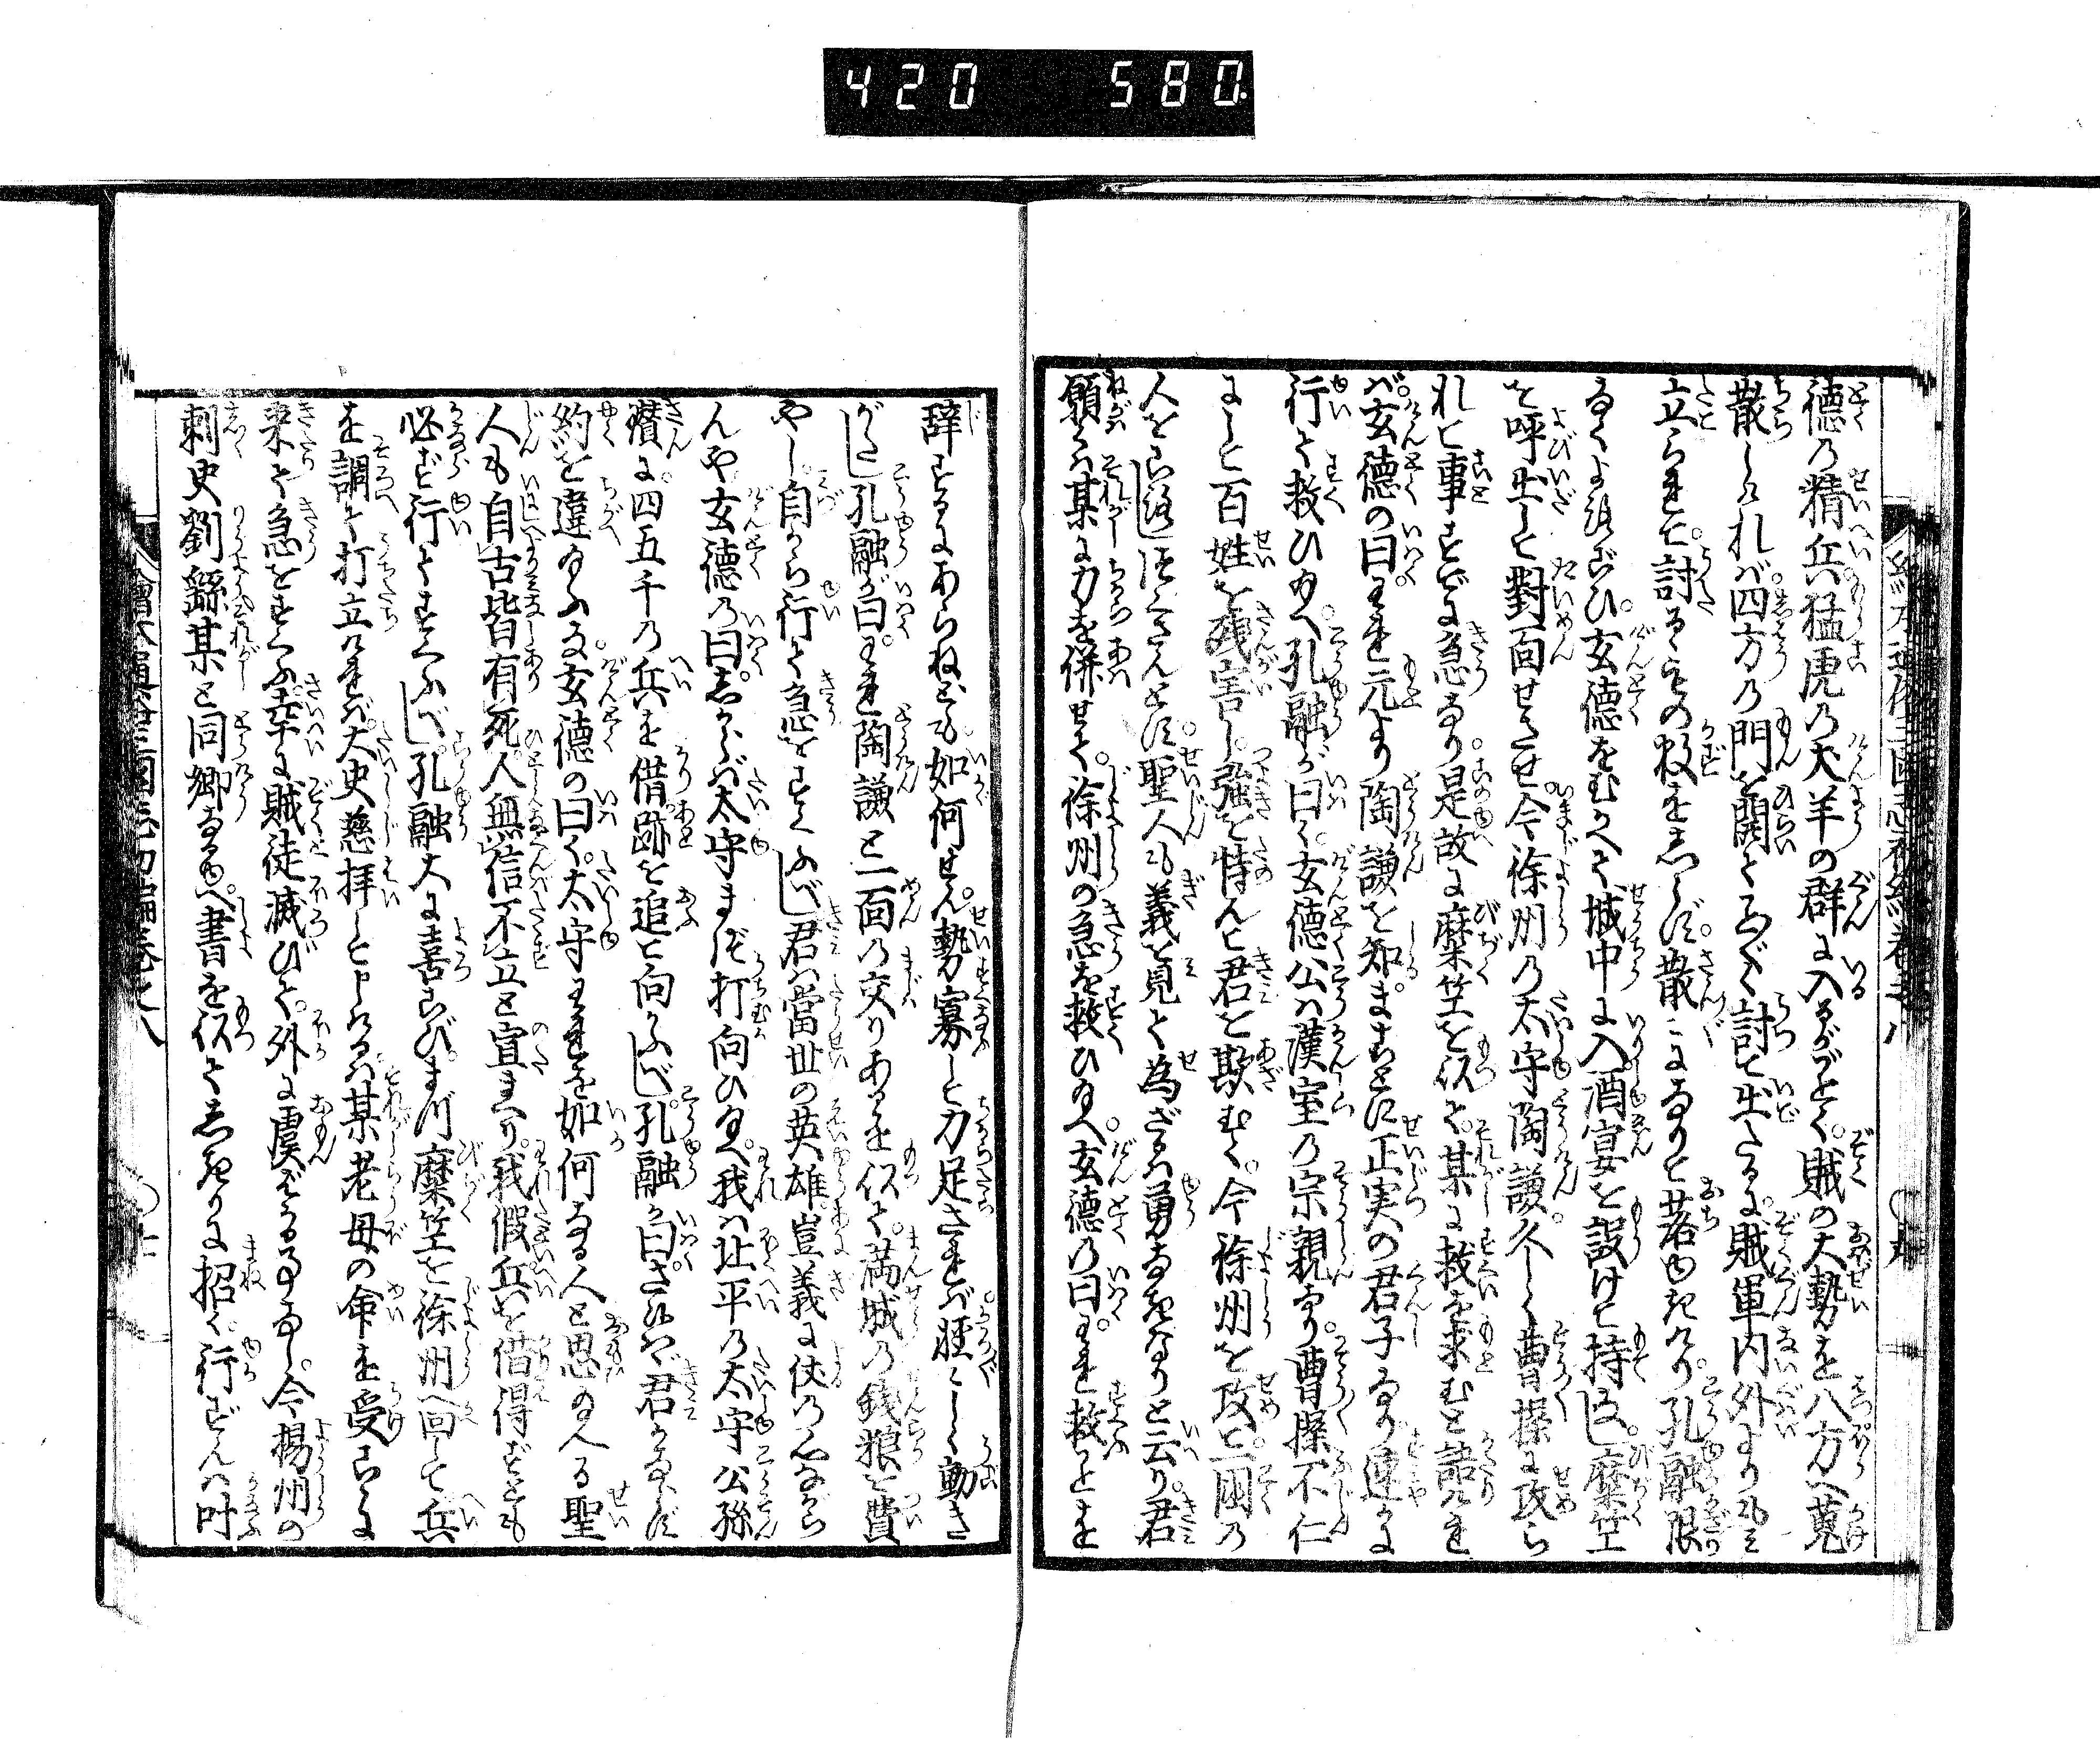 420 580.
徳の精兵猛虎の犬羊の群に入るがごとく。賊の大勢を八方へ蒐
散しければ。四方の門を開てみづから討て出たるに。賊軍内外より𛀙
立られて。討るゝもの数をしらず。散〻になりて落ゆきけり。孔融限
なくよろこび。玄徳をむかへて城中に入。酒宴を設けて持なし。糜竺
を呼出して對面せさせ。今徐州の太守陶謙。久しく曹操に攻ら
れて事すでに急なり。是故に糜竺を以て。某に救を求むと語れ
ば。玄徳の曰。われ元より陶謙を知。まことに正実の君子なり速かに
行て救ひ給へ。孔融が曰く。玄徳公は漢室の宗親なり。曹操不仁
にして百姓を残害し。強を恃んで君を欺むく。今徐州を攻て。一国の
人をころしつくさんとす。聖人も義を見て為ざるは勇なきなりと云り。君
願くは某に力を併せて。徐州の急を救ひ給へ。玄徳の曰。われ救ことを
辞するにあらねども。如何せん。勢寡して力足されば。軽〻しく動き
がたし。孔融が曰。われ陶謙と一面の交りあるを以て。満城の銭粮を費
やし。自から行て急をすくふべし。君は當世の英雄。豈義に仗の心なから
んや。玄徳の曰。しからば太守まづ打向ひ給へ。我は北平の太守公孫
瓚に。四五千の兵を借。跡を追て向ふべし。孔融が曰。さらば君かならず
約を違給ふな。玄徳の曰く。太守われを如何なる人と思ひ給へる。聖
人も自古皆有死。人無信不立と宣まへり。我假兵を借得ずとも
必ず行てすくふべし。孔融大に喜こび。まづ糜竺を徐州へ回して。兵
を調て打立ければ。大史慈拝して申けるは。某老母の命を受こゝに
来て急をすくふ。幸に賊徒滅びて。外に虞ざる事なし。今楊州の
刺史劉繇某と同郷なるゆへ。書を以てしきりに招く。行ずんば叶
繪本通俗三國志初編巻之八